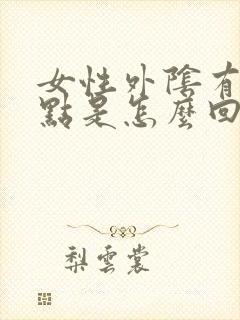 女性外陰有
點是怎麼回
梨雲裳